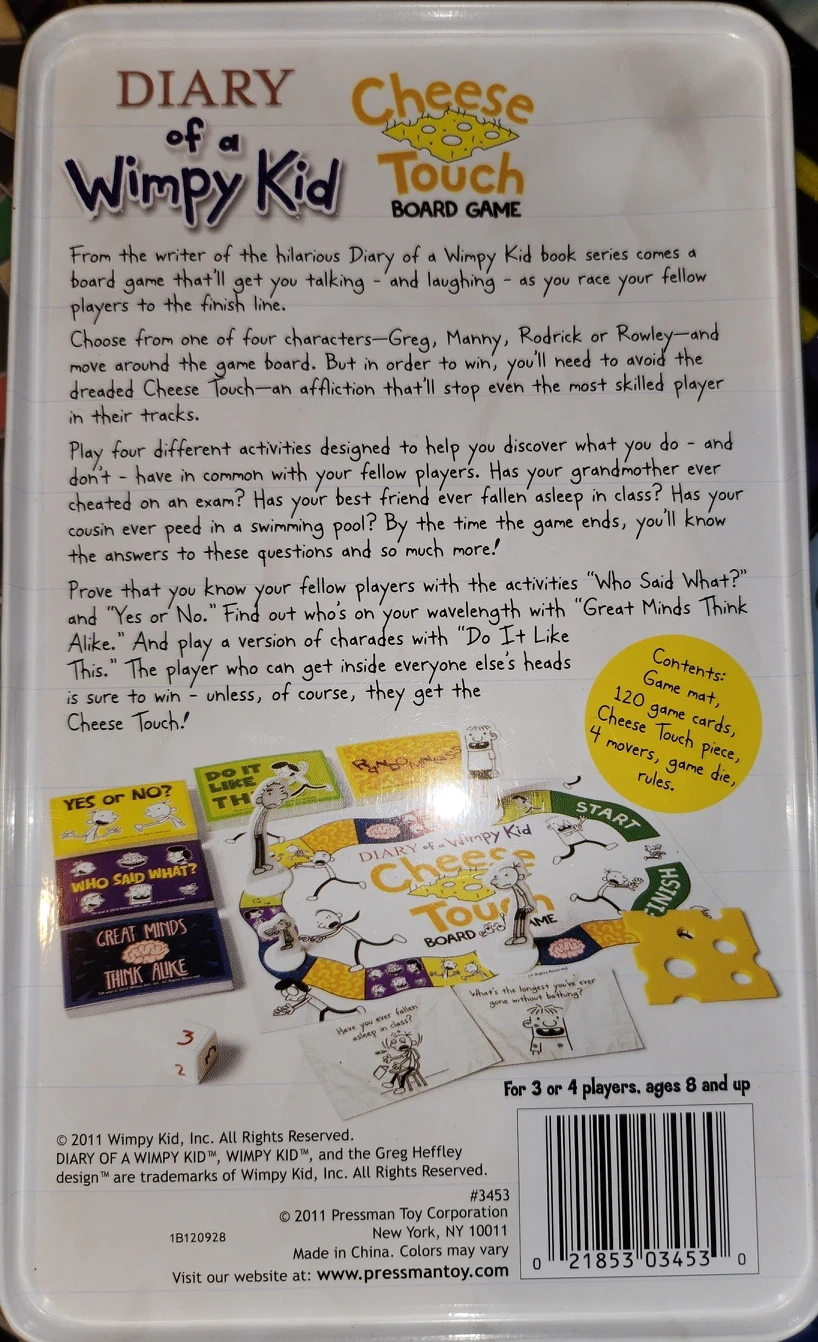 DIARY
of a
Wimpy Kid
Cheese
Touch
BOARD GAME
From the writer of the hilarious Diary of a Wimpy Kid book series comes a
board game that'll get you talking - and laughing - as you race your fellow
players to the finish line.
Choose from one of four characters—Greg, Manny, Rodrick or Rowley—and
move around the game board. But in order to win, you'll need to avoid the
dreaded Cheese Touch—an affliction that'll stop even the most skilled player
in their tracks.
Play four different activities designed to help you discover what you do - and
don't - have in common with your fellow players. Has your grandmother ever
cheated on an exam? Has your best friend ever fallen asleep in class? Has your
cousin ever peed in a swimming pool? By the time the game ends, you'll know
the answers to these questions and so much more!
Prove that you know your fellow players with the activities "Who Said What?"
and "Yes or No." Find out who's on your wavelength with "Great Minds Think
Alike." And play a version of charades with "Do It Like
This." The player who can get inside everyone else's heads
is sure to win - unless, of course, they get the
Cheese Touch!
Contents:
Game mat,
120 game cards,
Cheese Touch piece,
4 movers, game die,
rules.
YES or NO?
DO IT
LIKE
TH
WHO SAID WHAT?
GREAT MINDS
THINK ALIKE
START
FINISH
DIARY of a Wimpy Kid
Cheese
Touch
BOARD AME
Have you ever fallen
asleep in class?
What's the longest you've ever
gone without bathing?
3
2
For 3 or 4 players, ages 8 and up
© 2011 Wimpy Kid, Inc. All Rights Reserved.
DIARY OF A WIMPY KID™, WIMPY KID™, and the Greg Heffley
design™ are trademarks of Wimpy Kid, Inc. All Rights Reserved.
#3453
© 2011 Pressman Toy Corporation
1B120928
New York, NY 10011
Made in China. Colors may vary
Visit our website at: www.pressmantoy.com
0 21853 03453 0